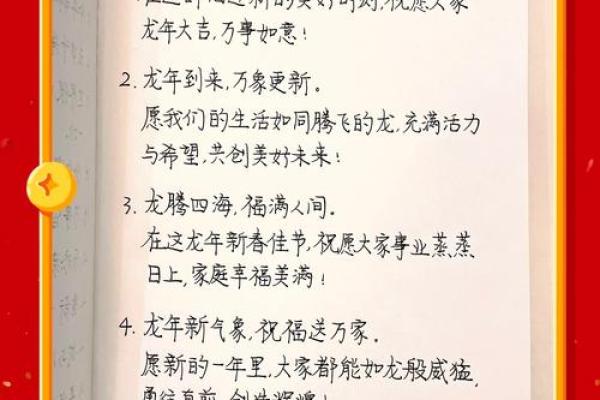 在这辞旧迎新的美好时刻,祝愿大家
龙年大吉,万事如意!
2. 龙年到来,万象更新。
愿我们的生活如同腾飞的龙,充满活力
与希望,共创美好未来!
3. 龙腾四海,福满人间。
在这龙年新春佳节,祝愿大家事业蒸蒸
日上,家庭幸福美满!
4. 龙年新气象,祝福送万家。
愿新的一年里,大家都能如龙般威猛,
勇往直前,创造辉煌!